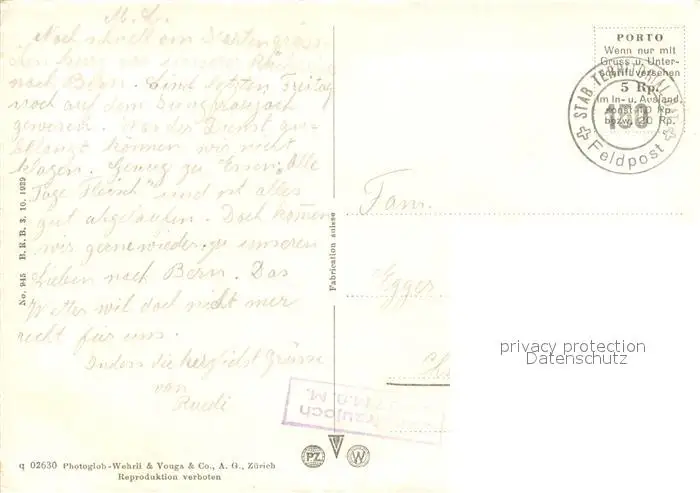 M. L.
Noch schnell ein Karten
nach Bern. Sind letzten Freitag
noch auf dem Jungfraujoch
gewesen. Was der Dienst an-
belangt können wir nicht
klagen. Genug zu Essen "Alle
Tage Fleisch" und ist alles
gut abgelaufen. Doch kommen
wir gerne wieder zu unseren
Lieben nach Bern. Das
Wetter will doch nicht mer
recht für uns.
Indem die herzlichst Grüsse
von
Ruedi
No. 945 B.R.B. 3. 10. 1939
q 02630 Photoglob-Wehrli & Vouga & Co., A. G., Zürich
Reproduktion verboten
Fabrication suisse
PZ
W
PORTO
Wenn nur mit
Gruss u. Unter-
schrift versehen
5 Rp.
im In- u. Ausland,
sonst 10 Rp.
bezw. 20 Rp.
STAB. TERRITORIAL
Feldpost
Fam.
Egger
fraujoch
M.ü.M.
privacy protection
Datenschutz